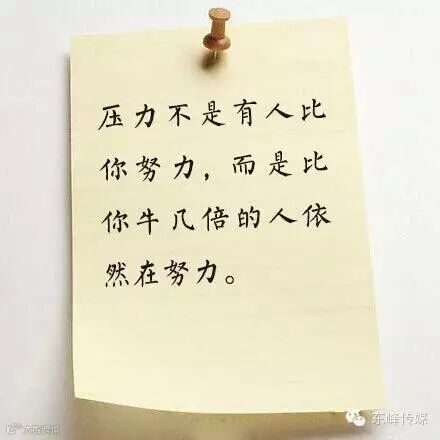 压力不是有人比
你努力，而是比
你牛几倍的人依
然在努力。
东峰传媒